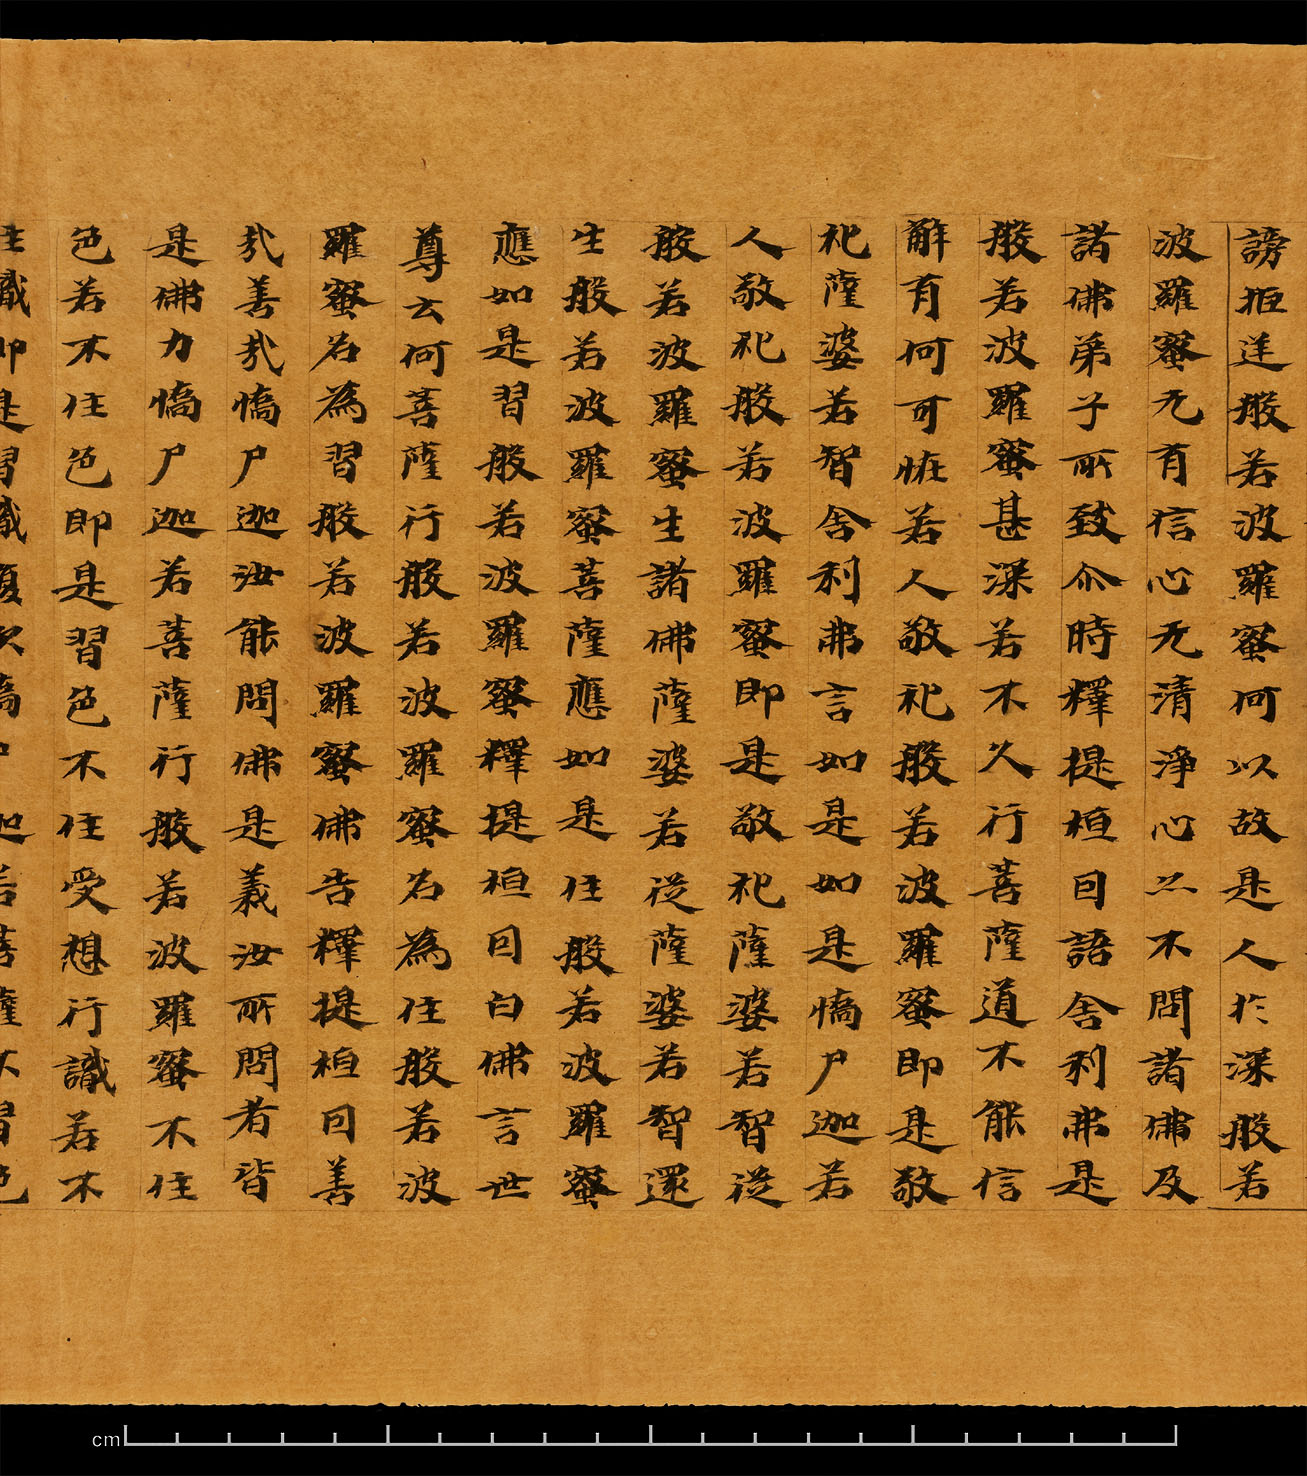 謗拒逆般若波羅蜜何以故是人於深般若
波羅蜜无有信心无清淨心亦不問諸佛及
諸佛弟子所致尒時釋提桓因語舍利弗是
般若波羅蜜甚深若不久行菩薩道不能信
解有何可恠若人敬礼般若波羅蜜即是敬
礼薩婆若智舍利弗言如是如是憍尸迦若
人敬礼般若波羅蜜即是敬礼薩婆若智從
般若波羅蜜生諸佛薩婆若從薩婆若智還
生般若波羅蜜菩薩應如是住般若波羅蜜
應如是習般若波羅蜜釋提桓因白佛言世
尊云何菩薩行般若波羅蜜名為住般若波
羅蜜名為習般若波羅蜜佛告釋提桓因善
哉善哉憍尸迦汝能問佛是義汝所問者皆
是佛力憍尸迦若菩薩行般若波羅蜜不住
色若不住色即是習色不住受想行識若不
住識即是習識復次憍尸迦若菩薩不習色